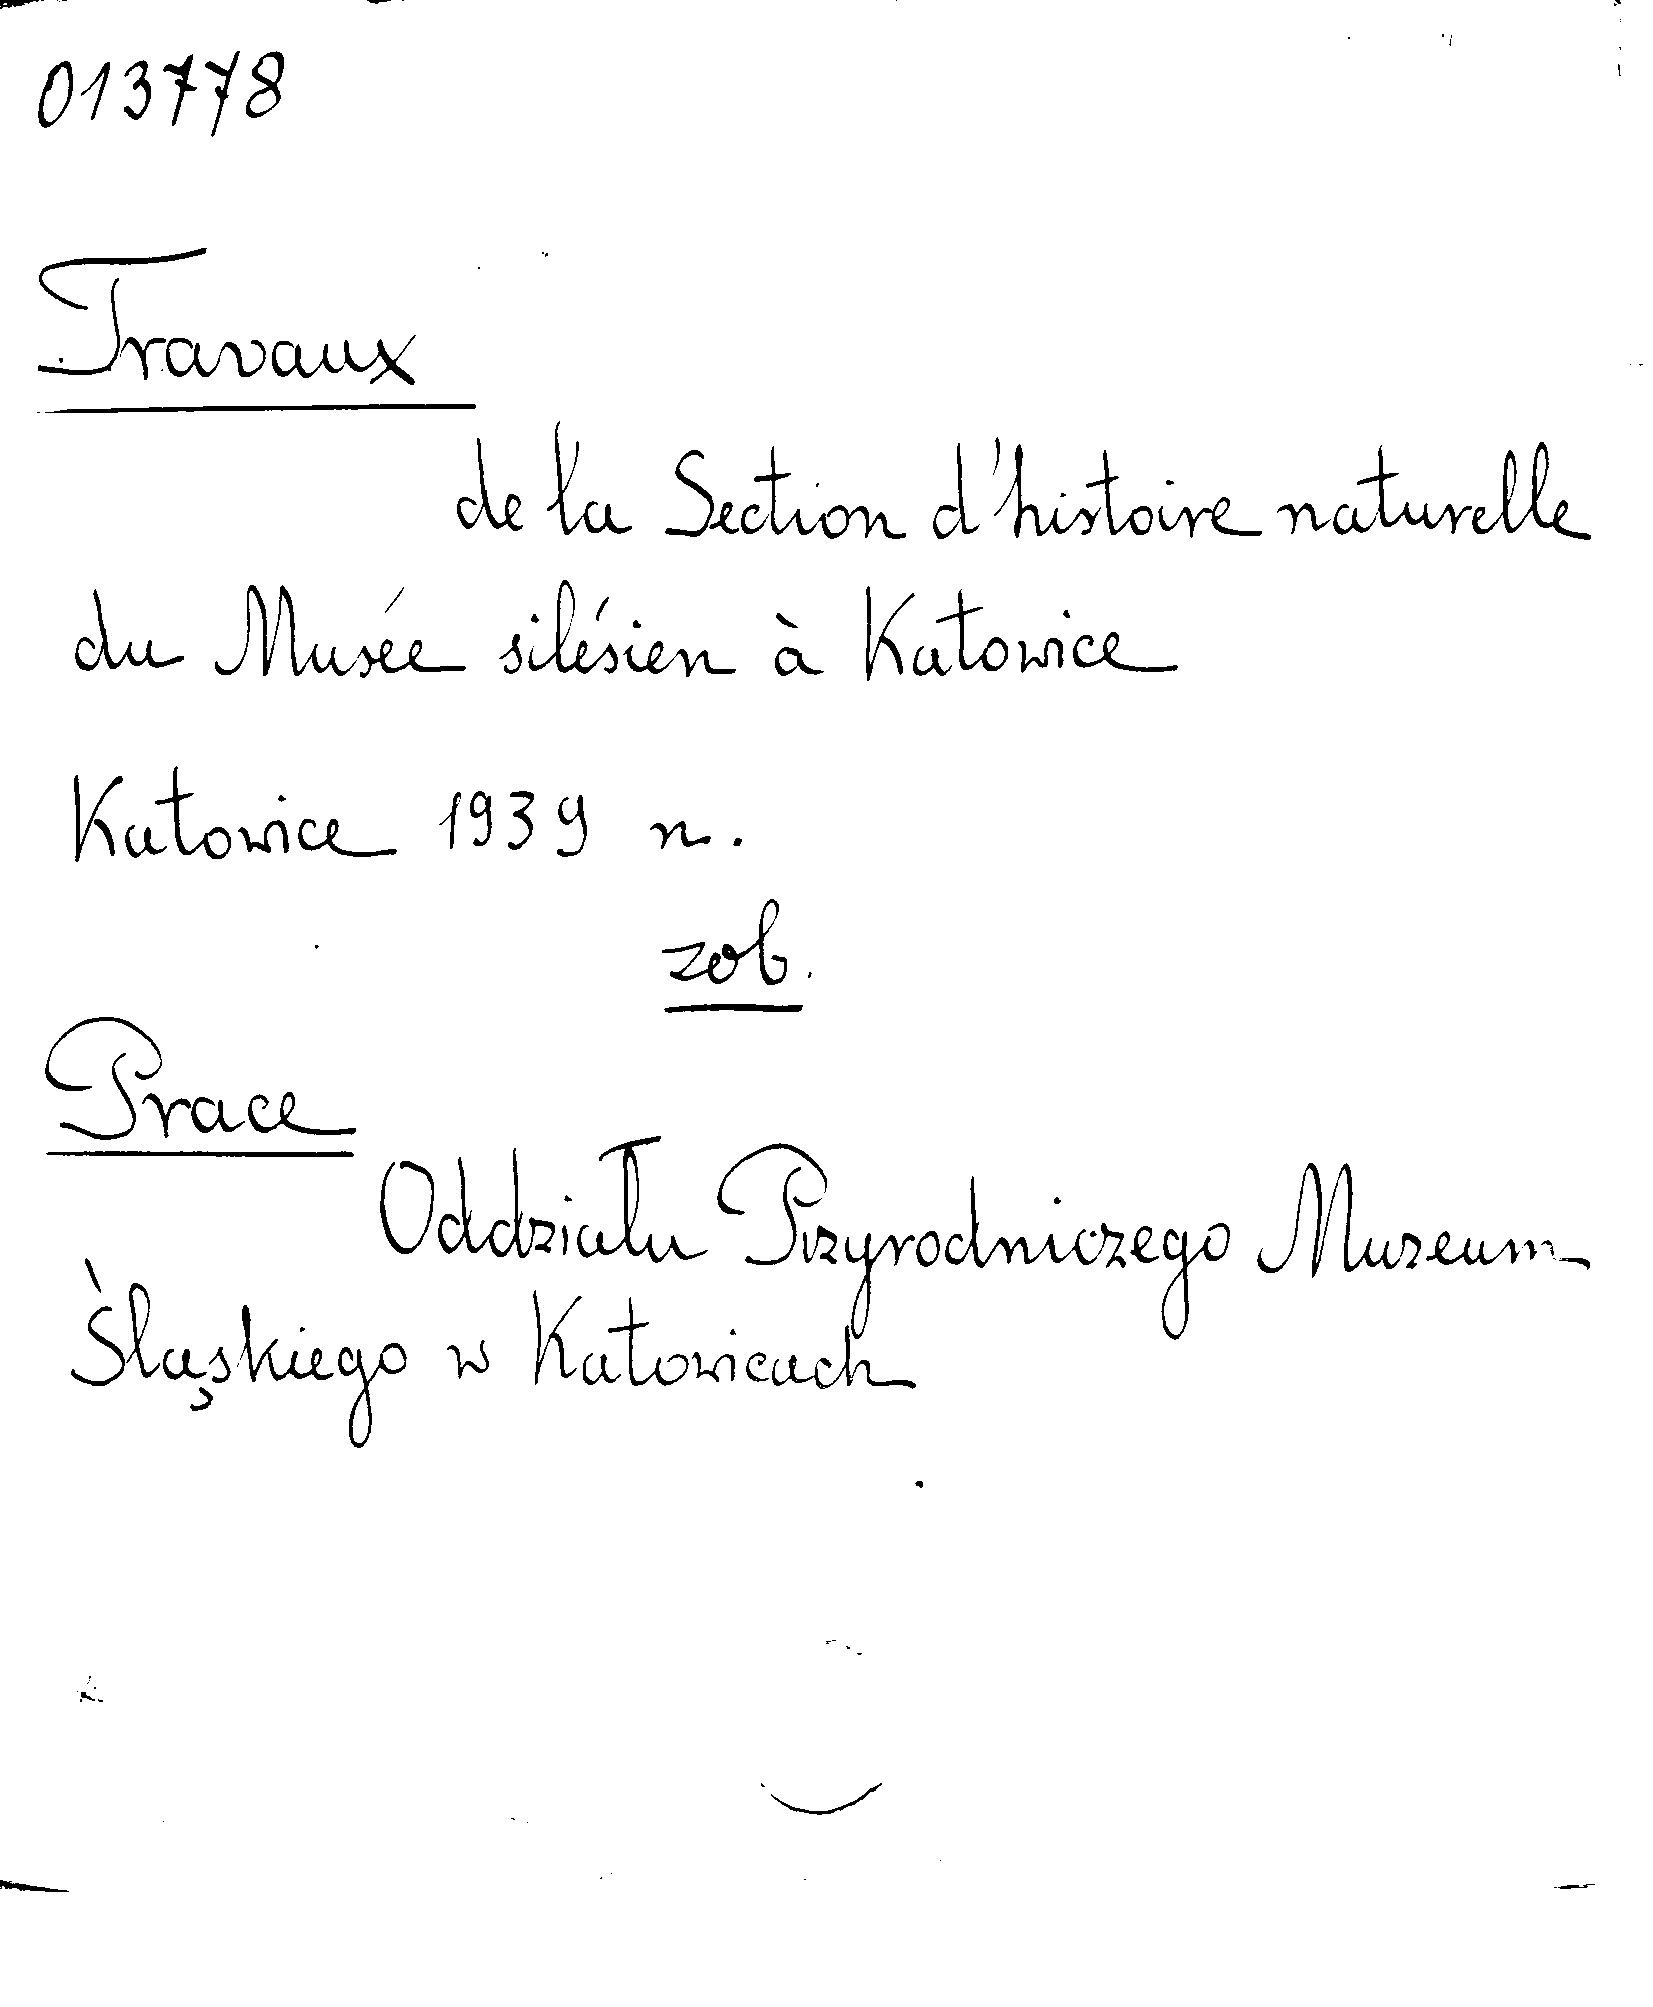 013778
Travaux
de la Section d'histoire naturelle
du Musée silésien à Katowice
Katowice 1939 n.
zob.
Prace
Oddziału Przyrodniczego Muzeum
Śląskiego w Katowicach